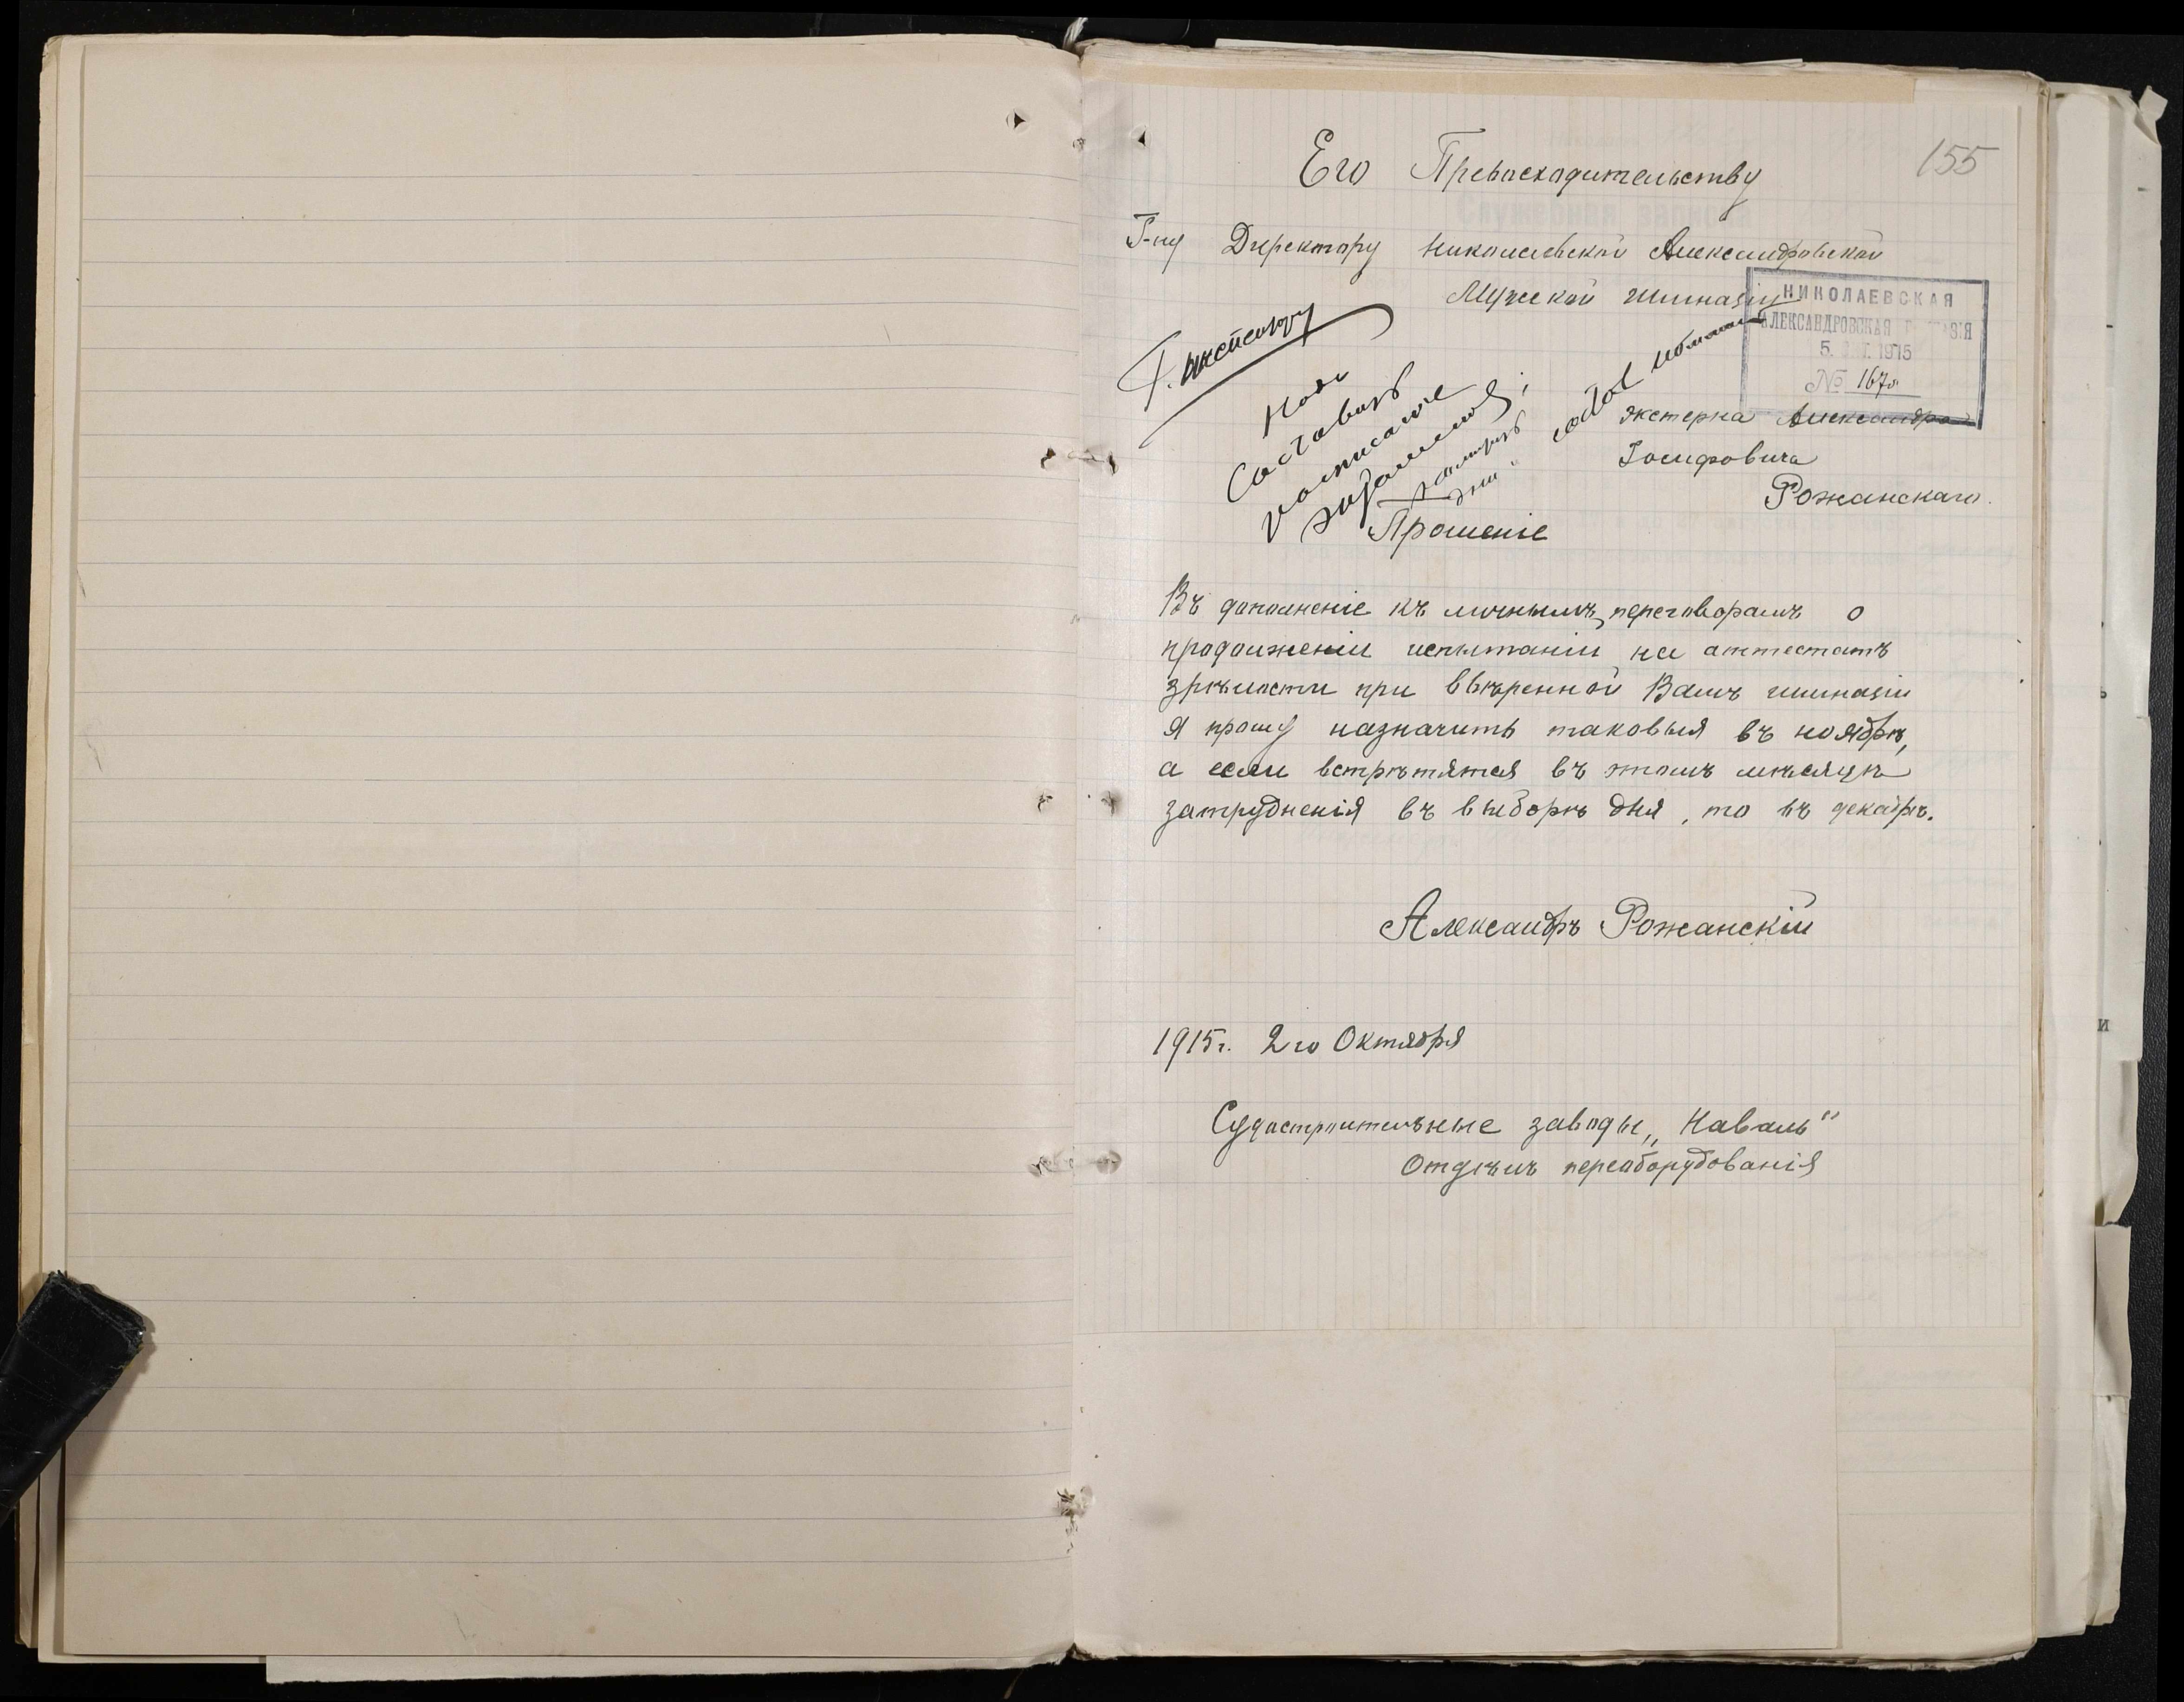 155
Его Превосходительству
Г-ну Директору Николаевской Александровской
Мужской гимназіи
НИКОЛАЕВСКАЯ
АЛЕКСАНДРОВСКАЯ
5. 1915
№ 167
экстерна Александра
Іосифовича
Рожанскаго.
Г. Инспектору
Надо
составить
росписаніе
экзаменовъ;
дни
Прошеніе
Въ дополненіе къ личнымъ переговорамъ о
продолженіи испытаніи на аттестатъ
зрѣлости при ввѣренной Вамъ гимназіи
я прошу назначить таковыя въ ноябрѣ,
а если встрѣтятся въ этомъ мѣсяцѣ
затрудненія въ выборѣ дня, то въ декабрѣ.
Александръ Рожанскій
1915г. 2го Октября
Судостроительные заводы „Наваль"
Отдѣлъ переоборудованія